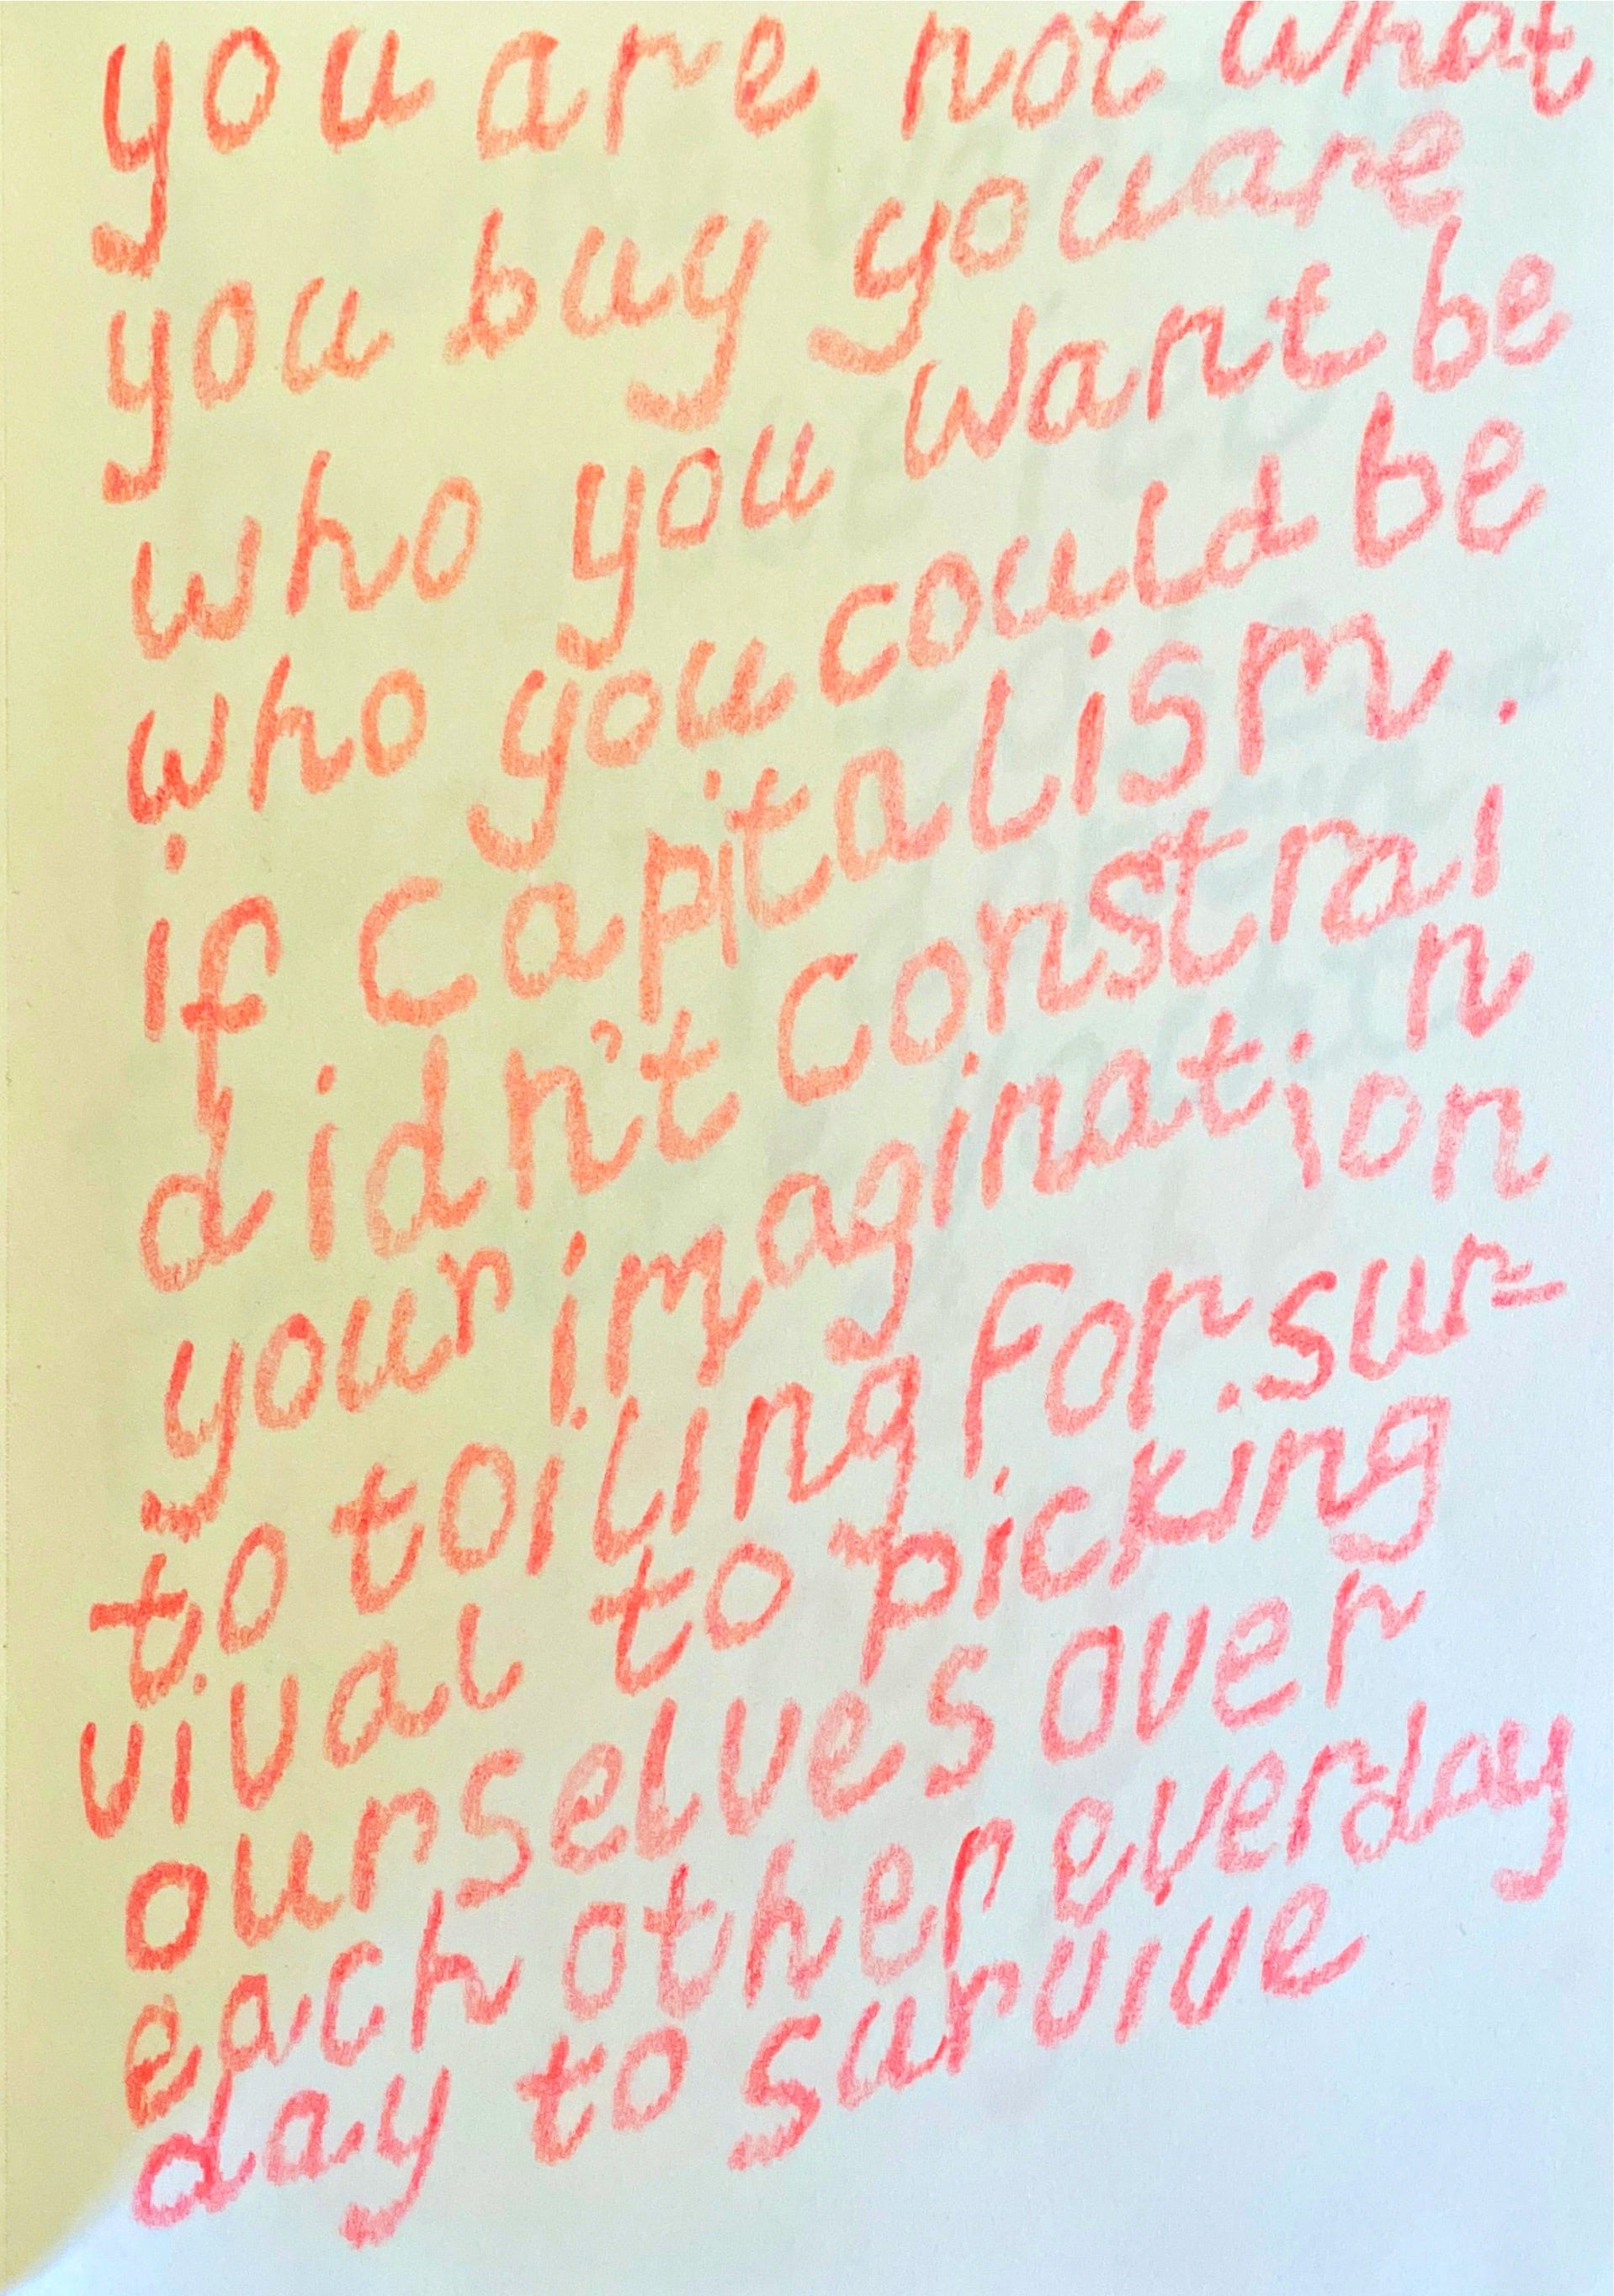 you are not what
you buy you are
who you want be
who you could be
if capitalism.
didn't constrai
n
your imagination
to toiling for sur=
vival to picking
ourselves over
each other everday
day to survive